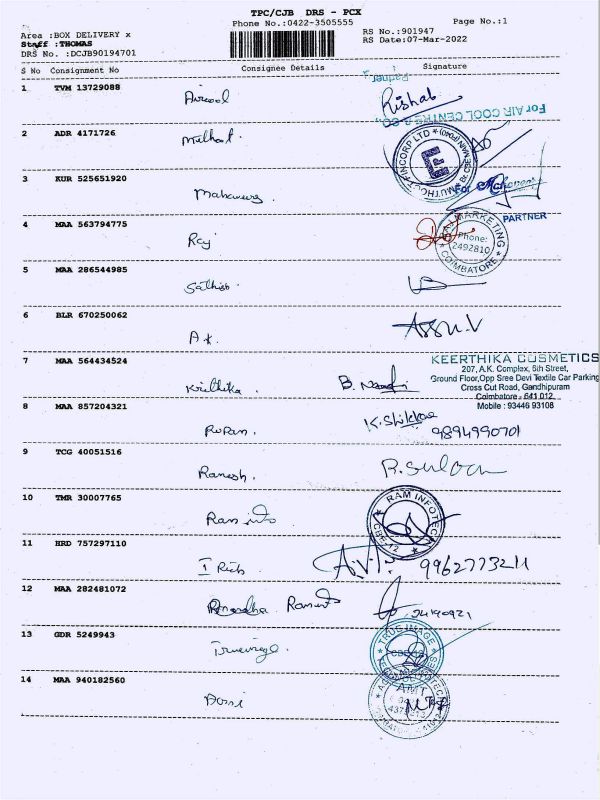 TPC/CJB DRS - PCX
Phone No.:0422-3505555
Page No.:1
Area :BOX DELIVERY x
Staff :THOMAS
DRS No. :DCJB90194701
RS No.:901947
RS Date:07-Mar-2022
S No Consignment No Consignee Details Signature
Partner
1 TVM 13729088 Aircool Rishab
For AIR COOL CENTRE & CO.,
2 ADR 4171726
3 KUR 525651920 For
PARTNER
4 MAA 563794775 Raj
MARKETING
Phone:
2492810
COIMBATORE
5 MAA 286544985 Sathish
6 BLR 670250062 A.K.
7 MAA 564434524 Krithika B.
KEERTHIKA COSMETICS
207, A.K. Complex, 6th Street,
Ground Floor, Opp Sree Devi Textile Car Parking
Cross Cut Road, Gandhipuram
Coimbatore - 641 012.
Mobile : 93446 93108
8 MAA 857204321 K.
9894990701
9 TCG 40051516 Ramesh.
10 TMR 30007765 Ram info
RAM INFOTECH
CBE-12
11 HRD 757297110 9962773211
12 MAA 282481072
13 GDR 5249943
TRUE IMAGE
14 MAA 940182560
AMT